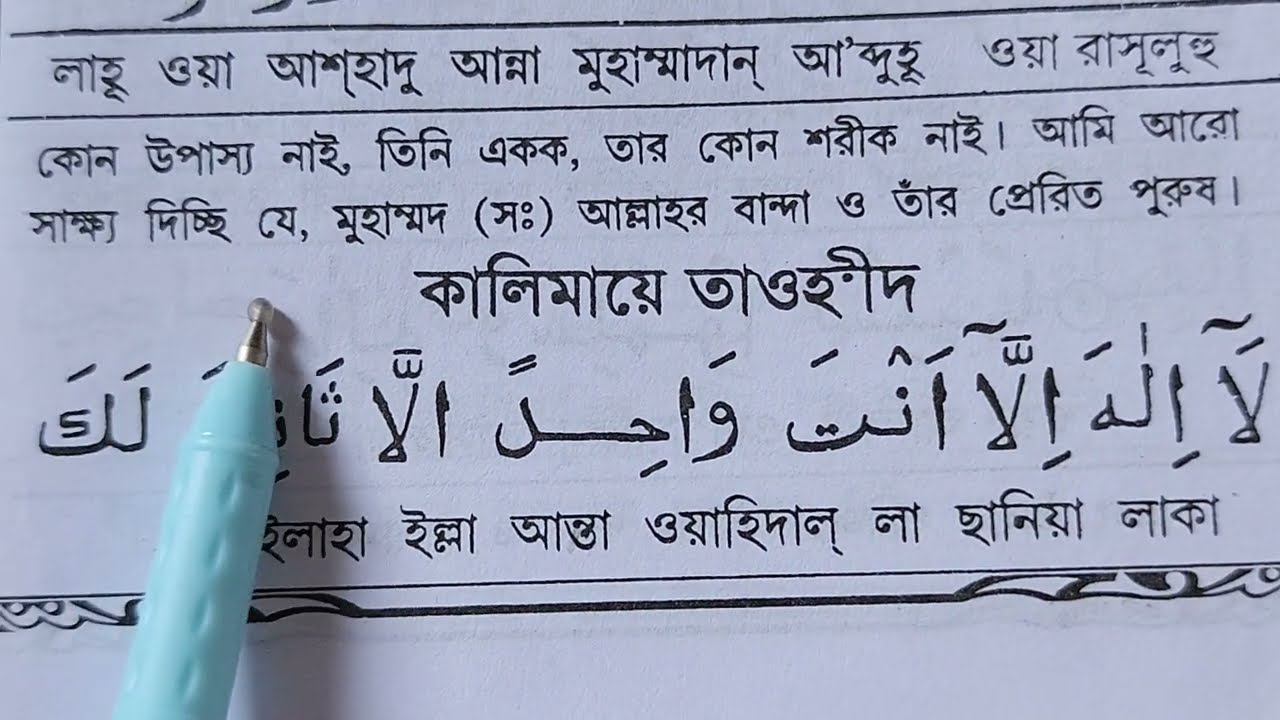 লাহূ ওয়া আশ্হাদু আন্না মুহাম্মাদান্ আ'ব্দুহূ ওয়া রাসূলুহু
কোন উপাস্য নাই, তিনি একক, তার কোন শরীক নাই। আমি আরো
সাক্ষ্য দিচ্ছি যে, মুহাম্মদ (সঃ) আল্লাহর বান্দা ও তাঁর প্রেরিত পুরুষ।
কালিমায়ে তাওহীদ
لَآ اِلٰهَ اِلَّآ اَنْتَ وَاحِدً الَّا لَكَ
ইলাহা ইল্লা আন্তা ওয়াহিদাল্ লা ছানিয়া লাকা